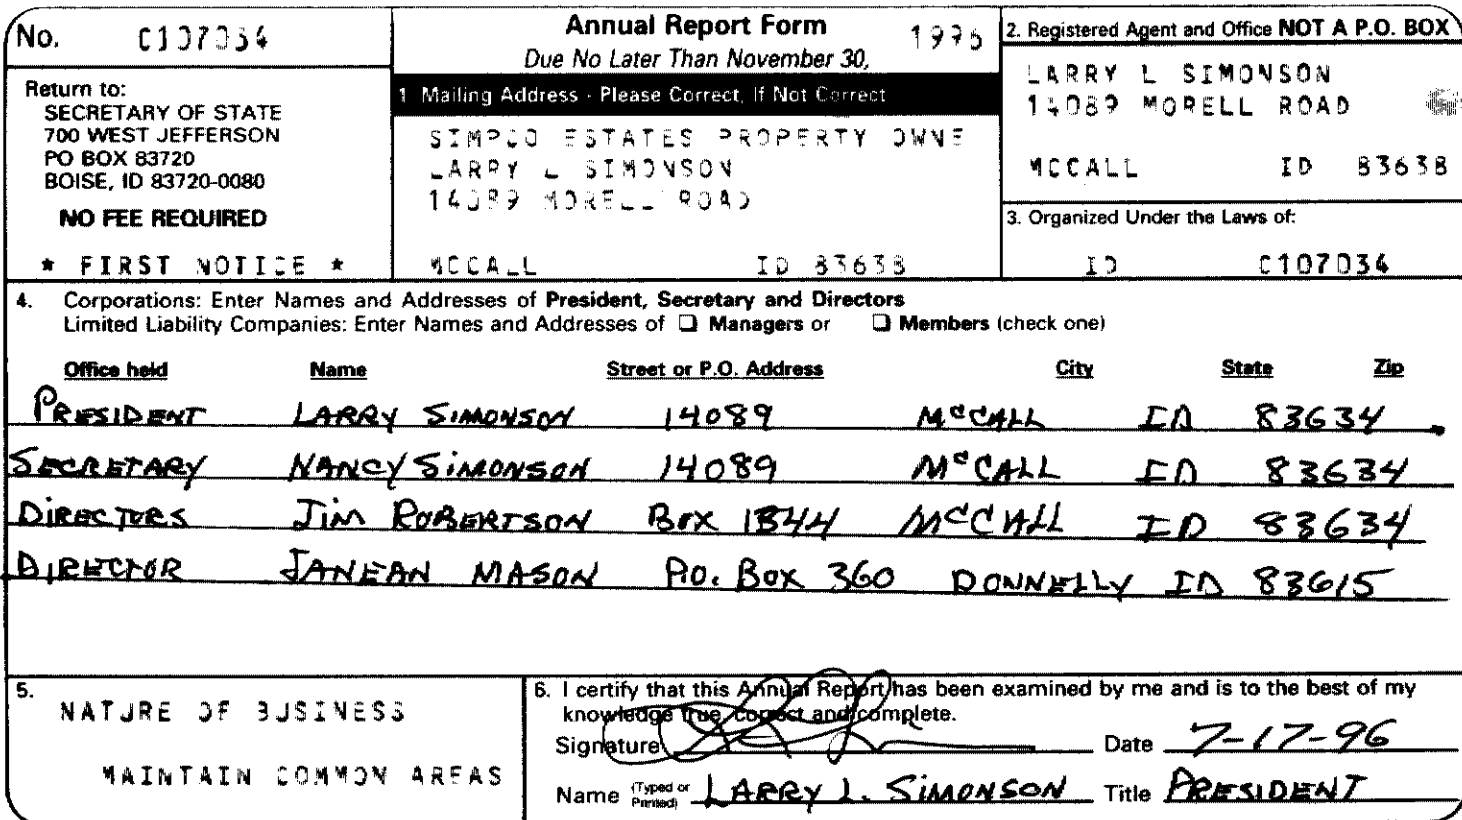 No. C107034
Annual Report Form 1996
Due No Later Than November 30,
Return to:
SECRETARY OF STATE
700 WEST JEFFERSON
PO BOX 83720
BOISE, ID 83720-0080
NO FEE REQUIRED
* FIRST NOTICE *
1 Mailing Address - Please Correct, If Not Correct
SIMPCO ESTATES PROPERTY OWNE
LARRY L SIMONSON
14089 MORELL ROAD
MCCALL ID 83638
2. Registered Agent and Office NOT A P.O. BOX
LARRY L SIMONSON
14089 MORELL ROAD
MCCALL ID 83638
3. Organized Under the Laws of:
ID C107034
4. Corporations: Enter Names and Addresses of President, Secretary and Directors
Limited Liability Companies: Enter Names and Addresses of ❏ Managers or ❏ Members (check one)
Office held Name Street or P.O. Address City State Zip
PRESIDENT LARRY SIMONSON 14089 McCALL ID 83634
SECRETARY NANCY SIMONSON 14089 McCALL ID 83634
DIRECTORS JIM ROBERTSON BOX 1344 McCALL ID 83634
DIRECTOR JANEAN MASON P.O. BOX 360 DONNELLY ID 83615
5.
NATURE OF BUSINESS
MAINTAIN COMMON AREAS
6. I certify that this Annual Report has been examined by me and is to the best of my
knowledge true, correct and complete.
Signature Date 7-17-96
Name (Typed or Printed) LARRY L. SIMONSON Title PRESIDENT